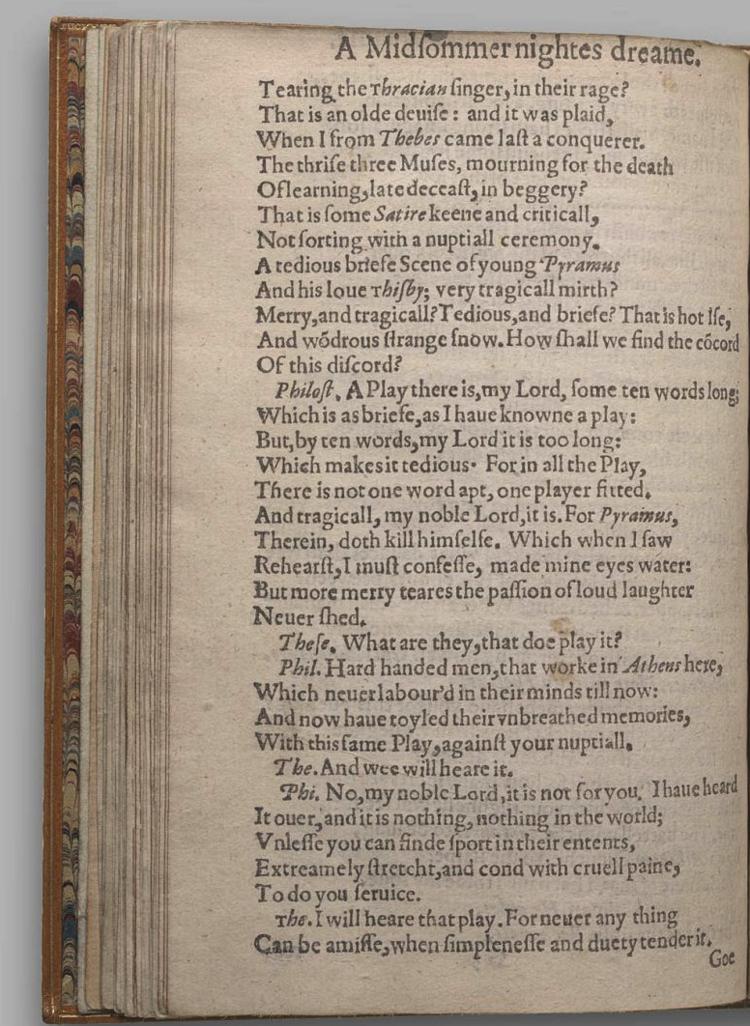 A Midſommer nightes dreame.
Tearing the Thracian ſinger, in their rage?
That is an olde deuiſe: and it was plaid,
When I from Thebes came laſt a conquerer.
The thriſe three Muſes, mourning for the death
Of learning, late deceaſt, in beggery?
That is ſome Satire keene and criticall,
Not ſorting with a nuptiall ceremony.
A tedious briefe Scene of young Pyramus
And his loue Thiſby; very tragicall mirth?
Merry, and tragicall? Tedious, and briefe? That is hot Iſe,
And wõdrous ſtrange ſnow. How ſhall we find the cõcord
Of this diſcord?
Philoſt. A Play there is, my Lord, ſome ten words long;
Which is as briefe, as I haue knowne a play:
But, by ten words, my Lord it is too long:
Which makes it tedious. For in all the Play,
There is not one word apt, one player fitted.
And tragicall, my noble Lord, it is. For Pyramus,
Therein, doth kill himſelfe. Which when I ſaw
Rehearſt, I muſt confeſſe, made mine eyes water:
But more merry teares the paſſion of loud laughter
Neuer ſhed.
Theſe. What are they, that doe play it?
Phil. Hard handed men, that worke in Athens here,
Which neuer labour'd in their minds till now:
And now haue toyled their vnbreathed memories,
With this ſame Play, againſt your nuptiall.
The. And wee will heare it.
Phi. No, my noble Lord, it is not for you. I haue heard
It ouer, and it is nothing, nothing in the world;
Vnleſſe you can finde ſport in their entents,
Extreamely ſtretcht, and cond with cruell paine,
To do you ſeruice.
The. I will heare that play. For neuer any thing
Can be amiſſe, when ſimpleneſſe and duety tender it.
Goe